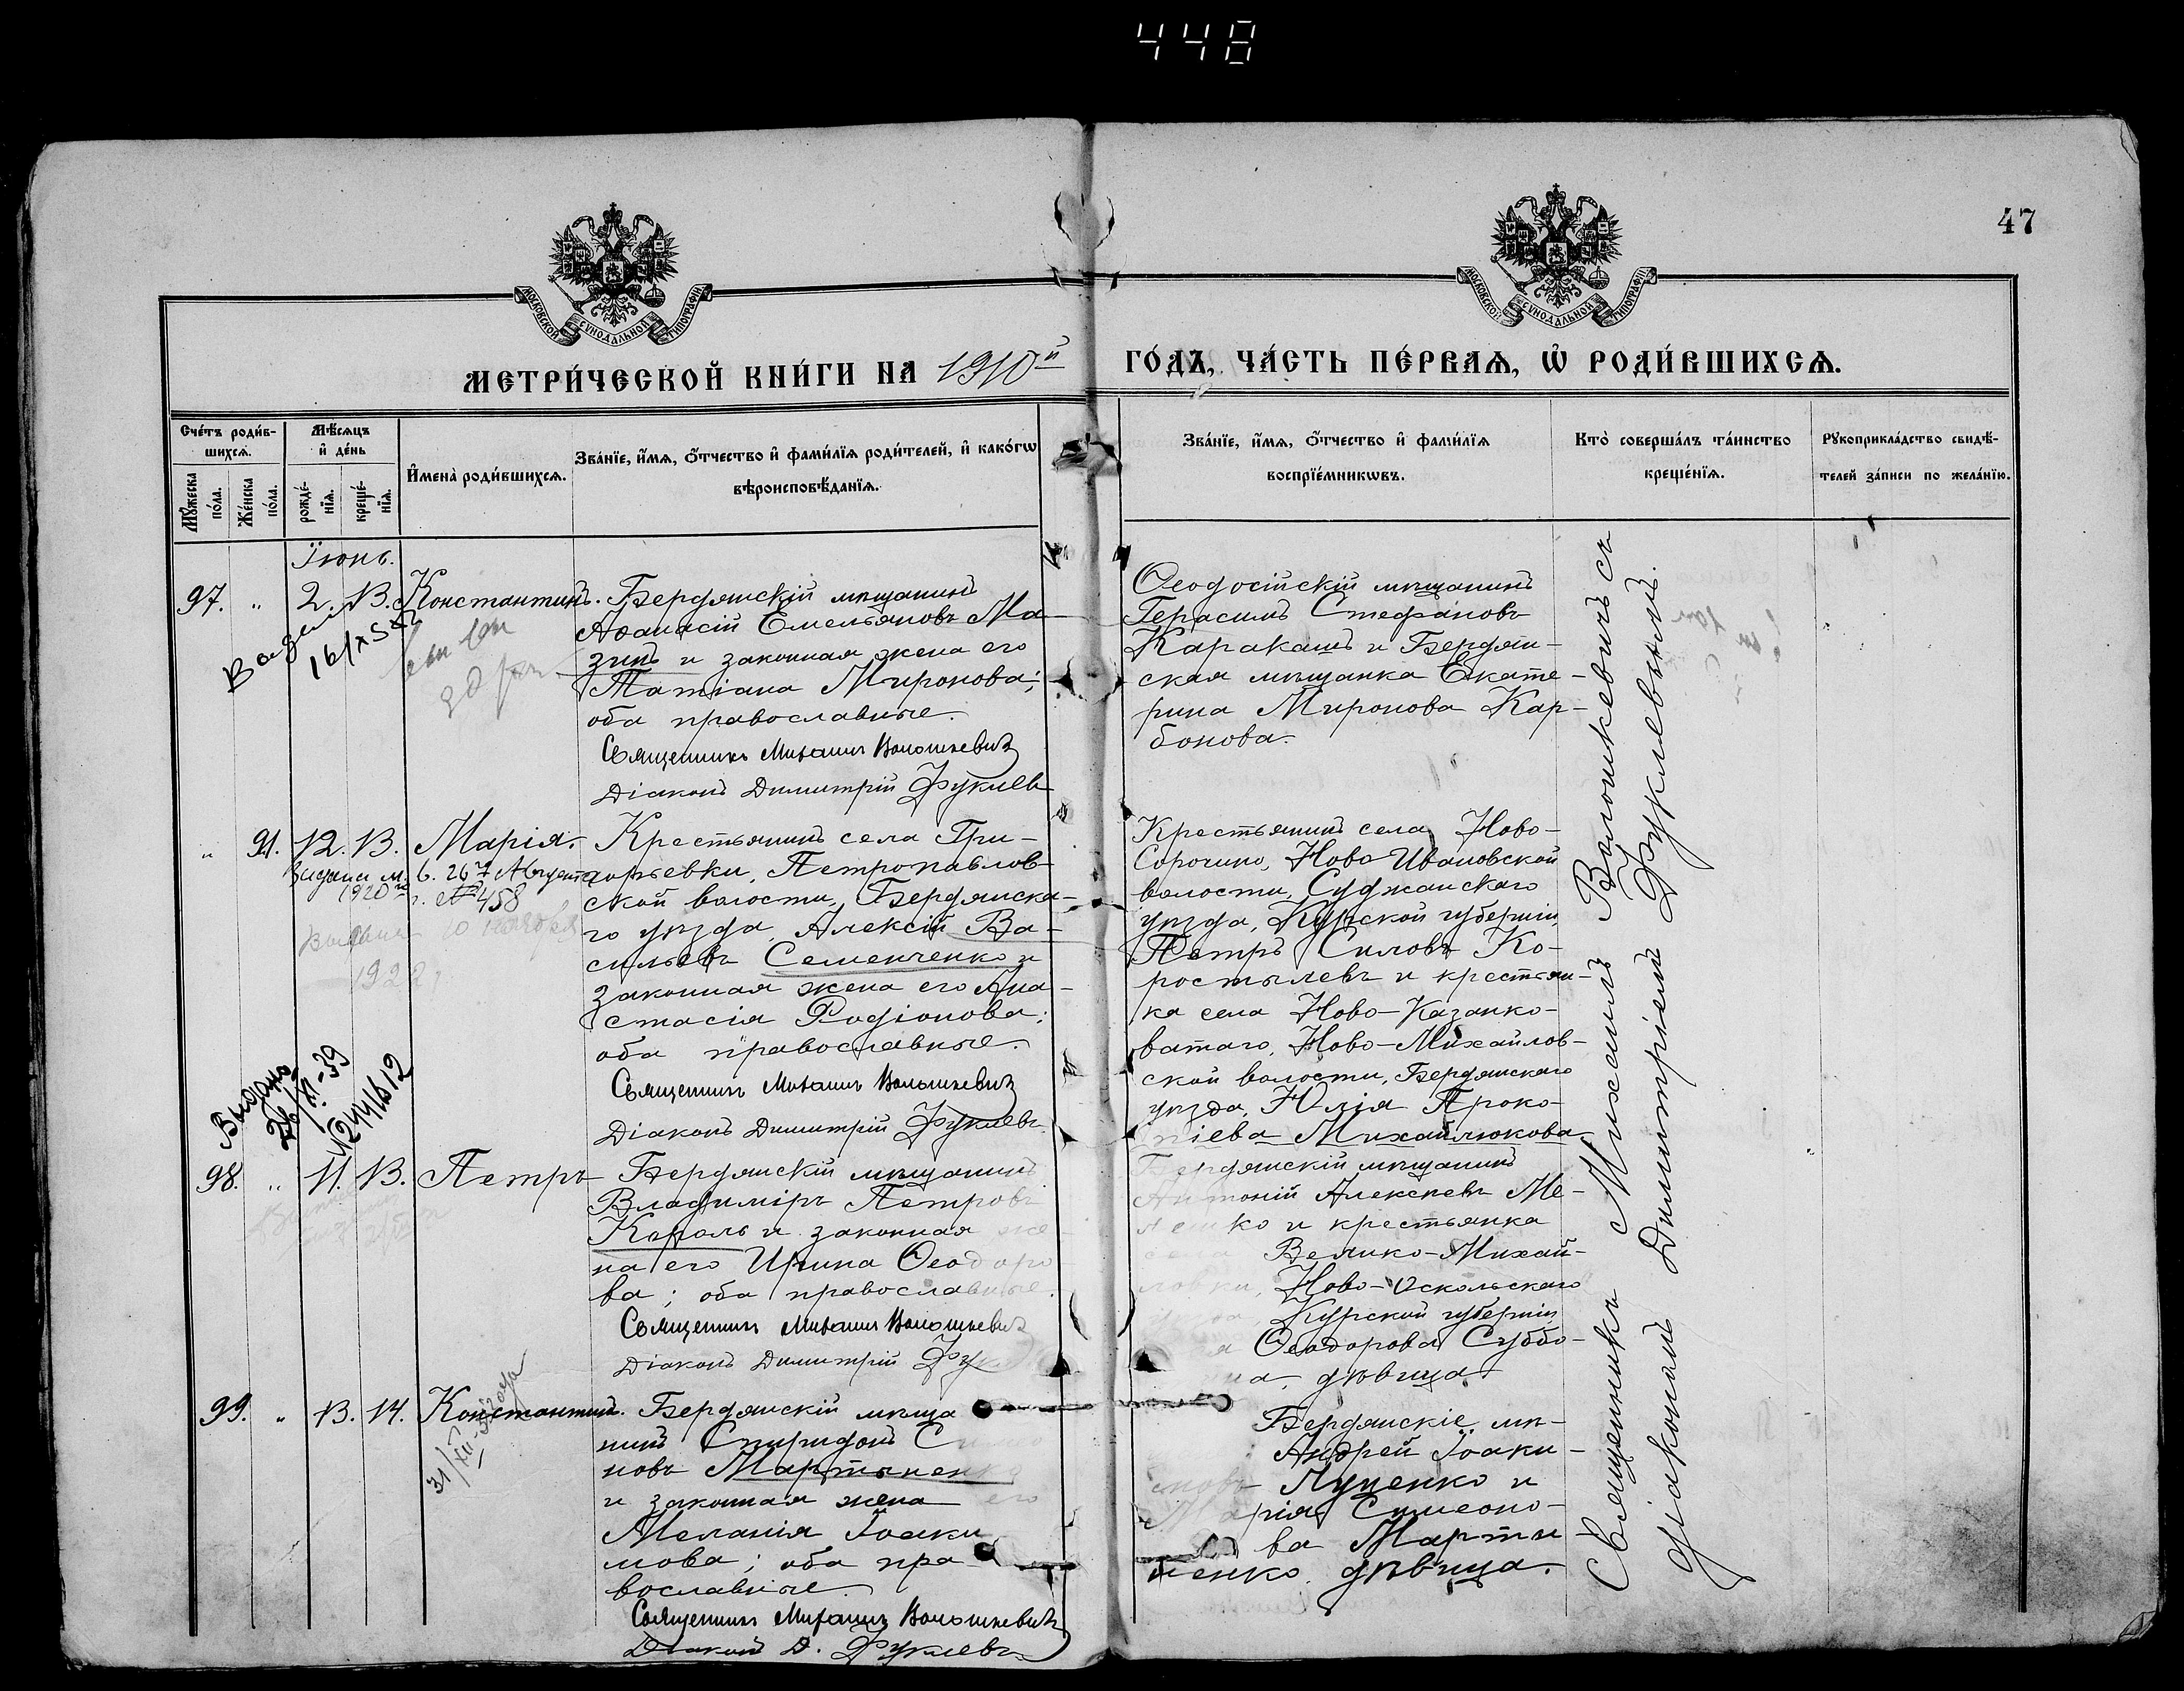 448
47
МОСКОВСКОЙ СУНОДАЛЬНОЙ ТИПОГРАФІИ
МОСКОВСКОЙ СУНОДАЛЬНОЙ ТИПОГРАФІИ
МЕТРИ́ЧЕСКОЙ КНИ́ГИ НА 1910й ГО́ДЪ, ЧА́СТЬ ПЕ́РВАѦ, Ѡ҆ РОДИ́ВШИХСѦ.
Счéтъ роди́в-
шихсѧ.
Мꙋ́жеска
по́ла.
Же́нска
по́ла.
Мѣ́сѧцъ
и҆ де́нь
рожде́-
нїѧ.
креще́-
нїѧ.
И҆мена̀ роди́вшихсѧ.
Зва́нїе, и҆́мѧ, ѻ҆́тчество и҆ фами́лїѧ роди́телей, и҆ како́гѡ
вѣроисповѣ́данїѧ.
Зва́нїе, и҆́мѧ, ѻ҆́тчество и҆ фами́лїѧ
воспрїе́мникѡвъ.
Кто̀ соверша́лъ та́инство
креще́нїѧ.
Рꙋкоприкла́дство свидѣ́-
телей за́писи по жела́нїю.
Іюнь.
97. " 2. 13. Константинъ.
Бердянскій мѣщанинъ
Аѳанасій Емельяновъ Ма-
зинъ и законная жена его
Татіана Миронова;
оба православные.
Священникъ Михаилъ Волошкевичъ
Діаконъ Димитрій Фуклевъ
Ѳеодосійскій мѣщанинъ
Герасимъ Стефановъ
Каракашъ и Бердян-
ская мѣщанка Екате-
рина Миронова Кар-
бонова.
" 91. 12. 13. Марія.
26го Августа
1920го г. № 458
10
1922
Крестьянинъ села Гри-
горьевки, Петропавлов-
ской волости, Бердянска-
го уѣзда, Алексій Ва-
сильевъ Семенченко и
законная жена его Ана-
стасія Родіонова;
оба православные.
Священникъ Михаилъ Волошкевичъ
Діаконъ Димитрій Фуклевъ.
Крестьянинъ села Ново-
Сорочино, Ново-Ивановской
волости, Суджанскаго
уѣзда, Курской губерніи,
Петръ Силовъ Ко-
ростылевъ и крестьян-
ка села Ново-Казанко-
ватаго, Ново-Михайлов-
ской волости, Бердянскаго
уѣзда, Юлія Проко-
піева Михайлюкова.
Выдано
26/XI-39
98. " 11. 13. Петръ
Бердянскій мѣщанинъ
Владиміръ Петровъ
Король и законная же
на его Ирина Ѳеодоро
ва; оба православные.
Священникъ Михаилъ Волошкевичъ
Діаконъ Димитрій Фук
Бердянскій мѣщанинъ
Антоній Алексѣевъ Ме-
лешко и крестьянка
села Велико-Михай-
ловки, Ново-Оскольскаго
уѣзда, Курской губерніи,
Ѳеодорова Суббо-
на, дѣвица.
99. " 13. 14. Константинъ.
31/XII
Бердянскій мѣща
нинъ Спиридонъ
новъ Мартыненко
и законная жена его
Меланія Іоаки
мова; оба пра
вославные.
Священникъ Михаилъ Волошкевичъ
Діаконъ Д. Фуклевъ
Бердянскіе мѣ-
Андрей Іоаки-
мовъ Луценко и
Марія Симеоно-
ва Марты
ненко, дѣвица.
Священникъ Михаилъ Волошкевичъ съ
діакономъ Димитріемъ Фуклевымъ.